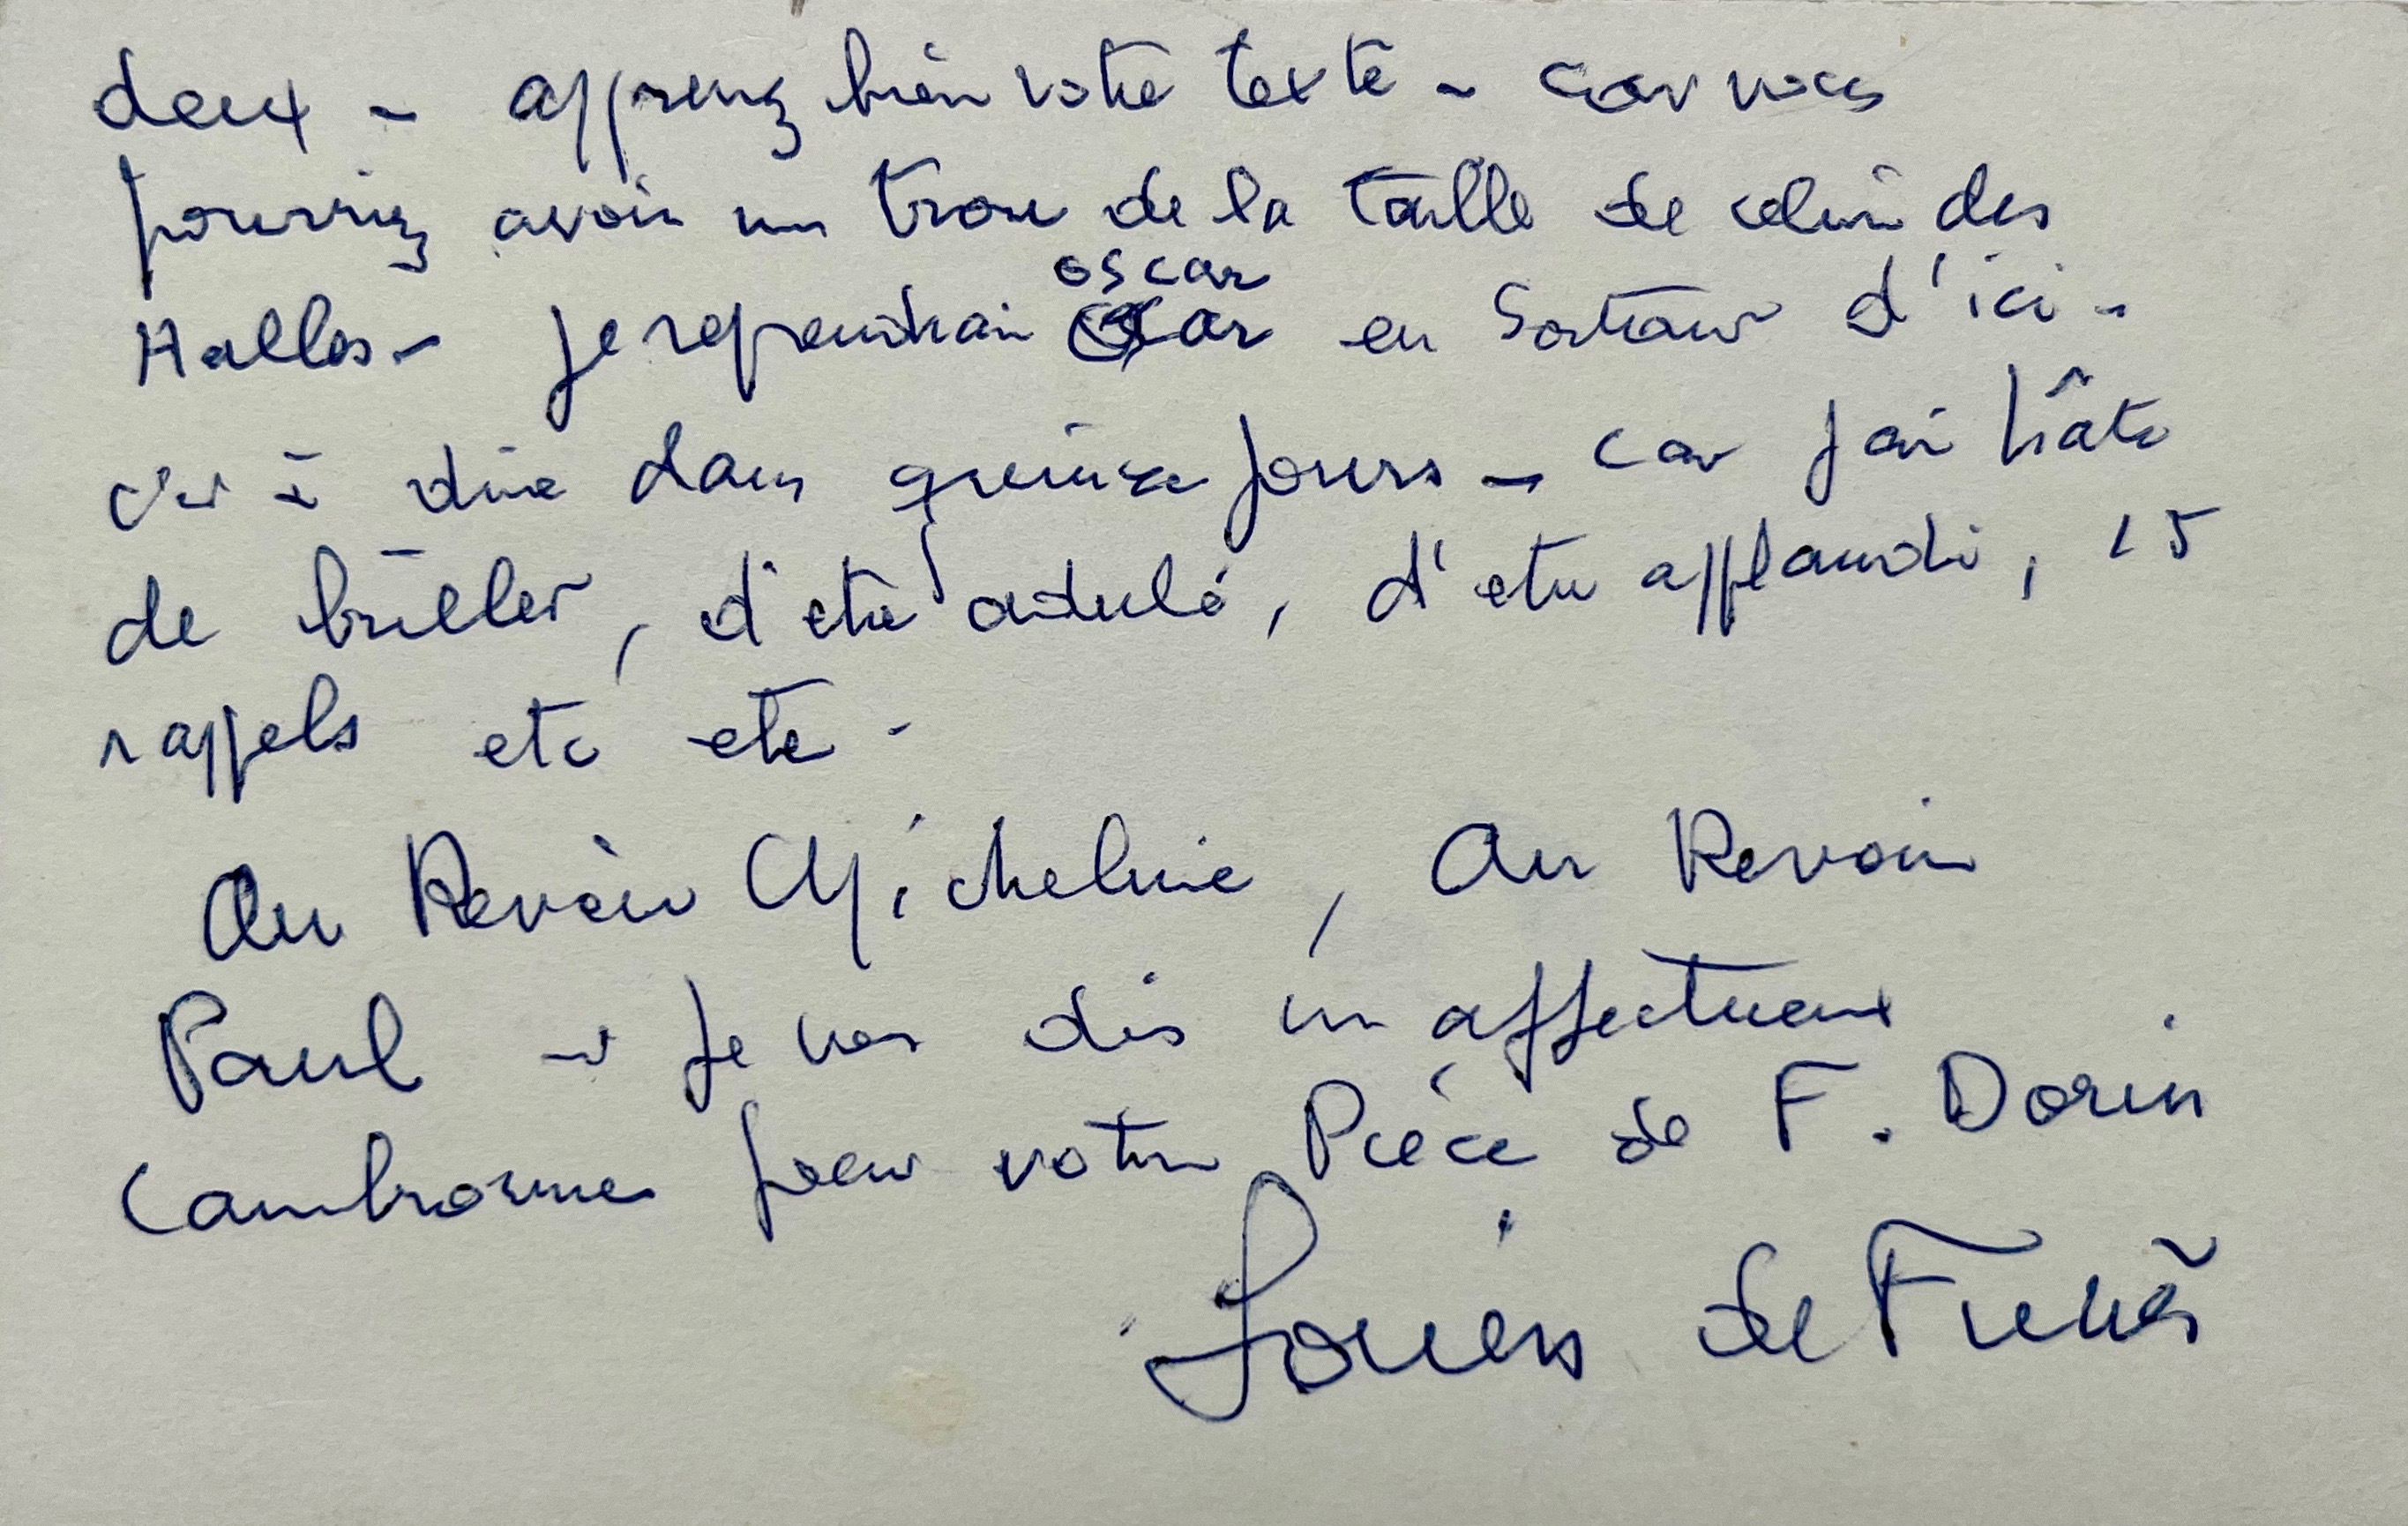 deux - apprenez bien votre texte - car vous
pourriez avoir un trou de la taille de celui des
Halles - Je reprendrai oscar en sortant d'ici -
c'est à dire dans quinze jours - car j'ai hâte
de briller, d'etre adulé, d'etre applaudi, 15
rappels etc etc -
Au Revoir Micheline, Au Revoir
Paul - Je vous dis un affectueux
Cambronne pour votre Pièce de F. Dorin
Louis de Funès